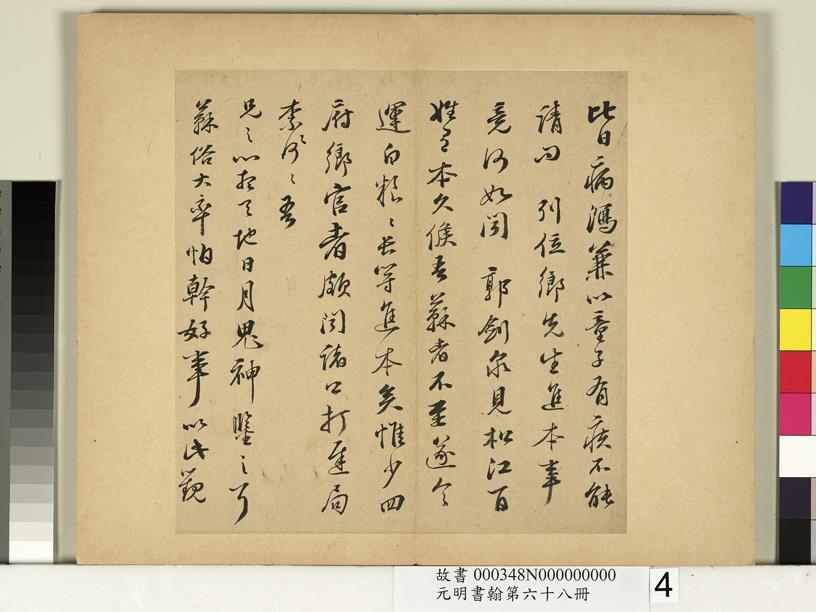 比日病瀉兼以童子有疾不能
請問 列位鄉先生進本事
竟何如聞 郭劍泉見松江百
姓有本久候吾蘇者不至遂令
運白粮粮長等進本矣惟少四
府鄉官者頗聞諸公打連局
柰何柰何吾
兄兄心於天地日月鬼神鑒之耳
蘇俗大率怕幹好事以此觀
故書 000348N000000000
元明書翰第六十八冊
4